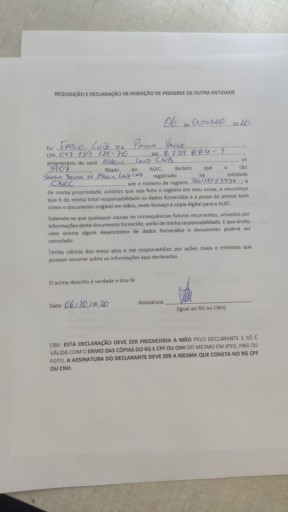 REQUISIÇÃO E DECLARAÇÃO DE INSERÇÃO DE PEDIGREE DE OUTRA ENTIDADE
06 de OUTUBRO de 20
Eu FABIO LUIS DA PAULA VALLE
CPF RG
proprietário do canil MAGIC LAND CWB nº
3907 filiado ao ALKC, declaro que o cão
registrado na entidade
CBKC sob o número de registro e
de minha propriedade, autorizo que seja feito o registro em meu nome, e reconheço
que é da minha total responsabilidade os dados fornecidos e a posse do animal bem
como o documento original em mãos, onde forneço a cópia digital para o ALKC.
Sabendo-se que quaisquer causas ou consequências futuras recorrentes, oriundas por
informações deste documento fornecido, serão de minha responsabilidade. E que ainda,
caso ocorra algum desencontro de dados fornecidos o documento poderá ser
cancelado.
Tenho ciência dos meus atos e me responsabilizo por ações civeis e criminais que
possam recorrer sobre as informações aqui declaradas.
O acima descrito é verdade e dou fé.
Data: 06/10/2020 Assinatura:
(igual ao RG ou CNH)
OBS: ESTA DECLARAÇÃO DEVE SER PREENCHIDA A MÃO PELO DECLARANTE E SÓ É
VÁLIDA COM O ENVIO DAS CÓPIAS DO RG E CPF OU CNH DO MESMO EM JPEG, PNG OU
FOTO. A ASSINATURA DO DECLARANTE DEVE SER A MESMA QUE CONSTA NO RG CPF
OU CNH.